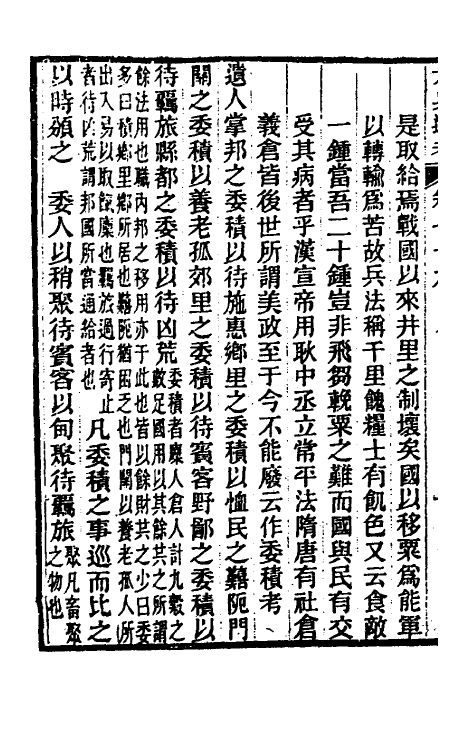 是取給焉戰國以來井里之制壞矣國以移粟爲能軍
以轉輸爲苦故兵法稱千里餽糧士有飢色又云食敵
一鍾當吾二十鍾豈非飛芻輓粟之難而國與民有交
受其病者乎漢宣帝用耿中丞立常平法隋唐有社倉
義倉皆後世所謂美政至于今不能廢云作委積考
遺人掌邦之委積以待施惠鄉里之委積以恤民之囏阨門
關之委積以養老孤郊里之委積以待賓客野鄙之委積以
待羈旅縣都之委積以待凶荒
委積者廩人倉人計九穀之
數足國用以其餘共之所謂
餘法用也職內邦之移用亦于此也皆以餘財共之少曰委
多曰積鄉里鄉所居也囏阨猶困乏也門關以養老孤人所
出入易以取餼廩也羈旅過行寄止
者待凶荒謂邦國所當通給者也
凡委積之事巡而比之
以時頒之　委人以稍聚待賓客以甸聚待羈旅
聚凡畜聚
之物也